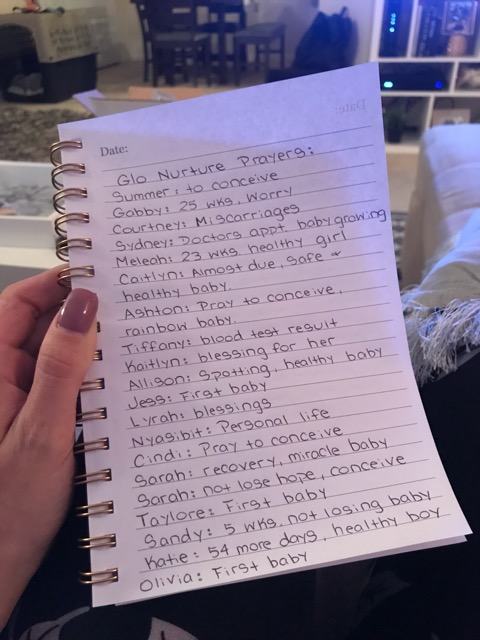 Date:
Glo Nurture Prayers:
Summer: to conceive
Gabby: 25 wks, worry
Courtney: Miscarriages
Sydney: Doctors appt baby growing
Meleah: 23 wks healthy girl
Caitlyn: Almost due, safe &
healthy baby.
Ashton: Pray to conceive,
rainbow baby.
Tiffany: blood test result
Kaitlyn: blessing for her
Allison: Spotting, healthy baby
Jess: First baby
Lyrah: blessings
Nyasibit: Personal life
Cindi: Pray to conceive
Sarah: recovery, miracle baby
Sarah: not lose hope, conceive
Taylore: First baby
Sandy: 5 wks, not losing baby
Katie: 54 more days, healthy boy
Olivia: First baby